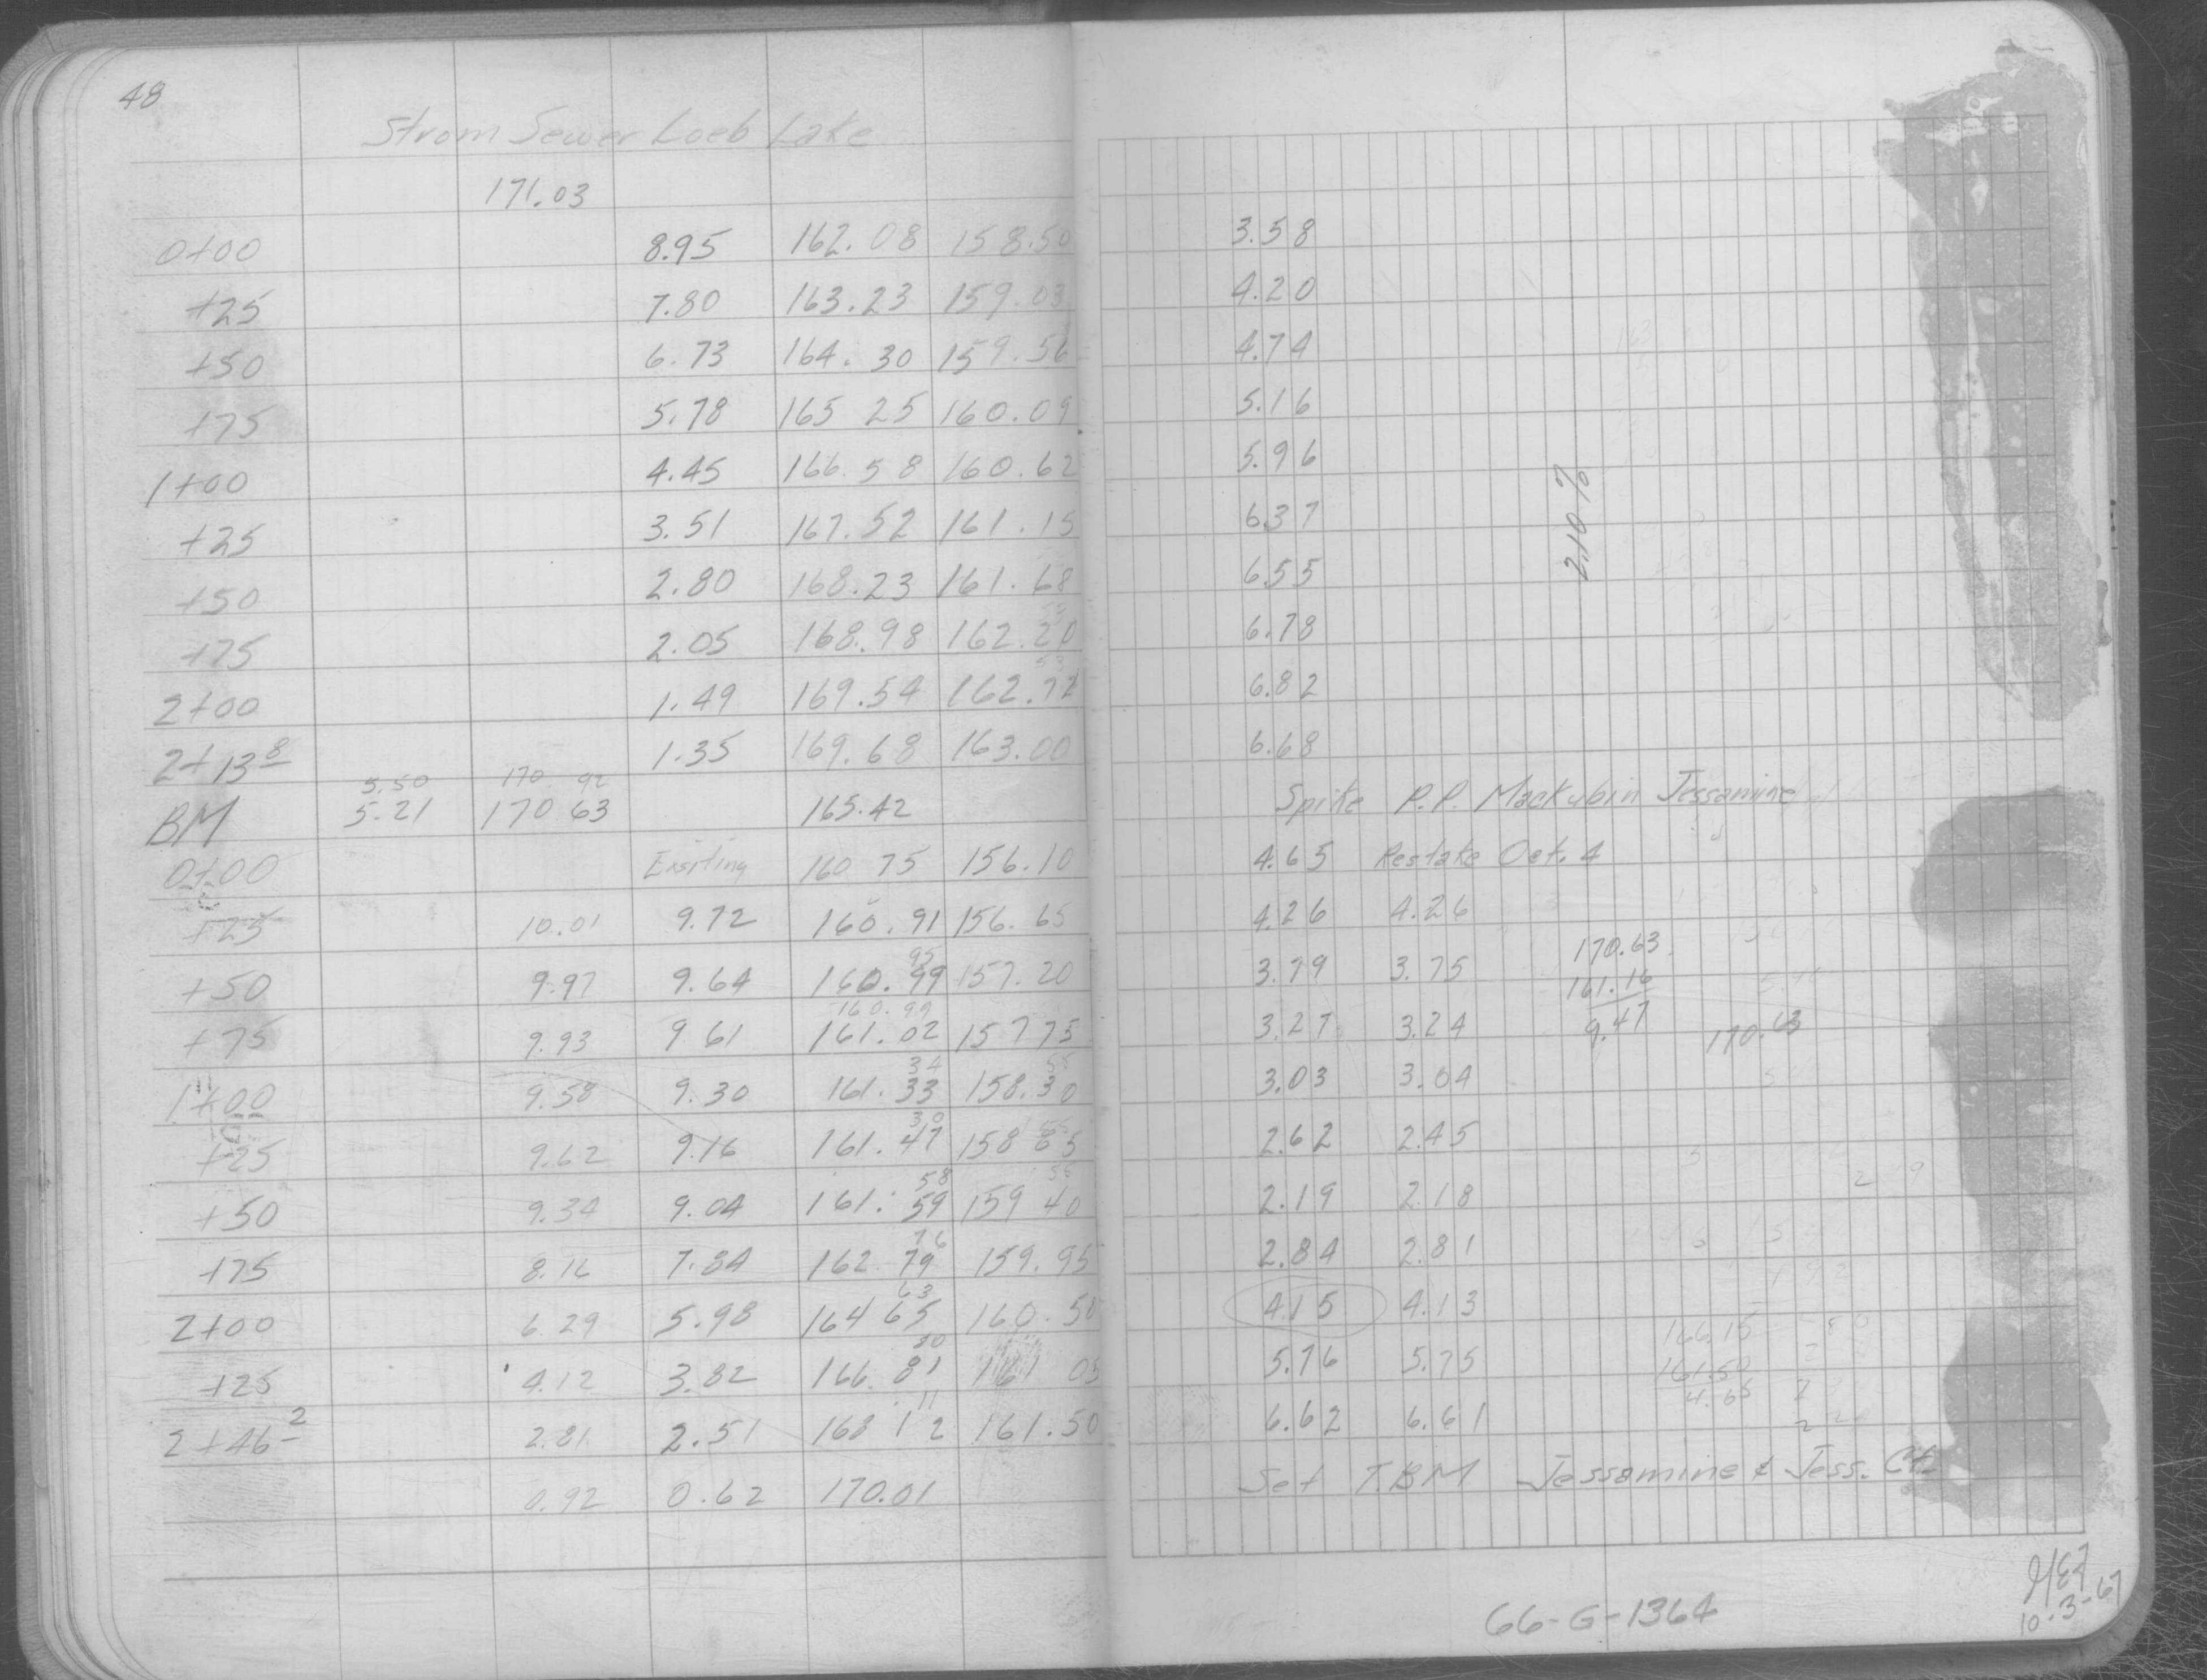 48
Strom Sewer Loeb Lake
171.03
0+00 8.95 162.08 158.50 3.58
+25 7.80 163.23 159.03 4.20
+50 6.73 164.30 159.56 4.74
+75 5.78 165 25 160.09 5.16
1+00 4.45 166.58 160.62 5.96
+25 3.51 167.52 161.15 6.37
2.10%
+50 2.80 168.23 161.68 6.55
+75 2.05 168.98 162.20 6.78
2+00 1.49 169.54 162.72 6.82
2+13 8 1.35 169.68 163.00 6.68
5.50 170.92
BM 5.21 170 63 165.42 Spike P.P. Mackubin Jessamine
0+00 Exsiting 160 75 156.10 4.65 Restake Oct. 4
+25 10.01 9.72 160.91 156.65 4.26 4.26
170.63
95
+50 9.97 9.64 160.99 157.20 3.79 3.75 161.16
160.99
+75 9.93 9.61 161.02 157 75 3.27 3.24 9.47 170.63
34
1+00 9.58 9.30 161.33 158.30 3.03 3.04
30
+25 9.62 9.16 161.47 158 85 2.62 2.45
58
+50 9.34 9.04 161.59 159 40 2.19 2.18
76
+75 8.16 7.84 162.79 159.95 2.84 2.81
63
2+00 6.29 5.98 164 65 160.50 4.15 4.13
166.15
80
+25 4.12 3.82 166.81 161 05 5.76 5.75 161.50
4.65
11
2+46 2 2.81 2.51 168 12 161.50 6.62 6.61
0.92 0.62 170.01 Set T.B.M Jessamine & Jess. Ct.
66-G-1364
10-3-67